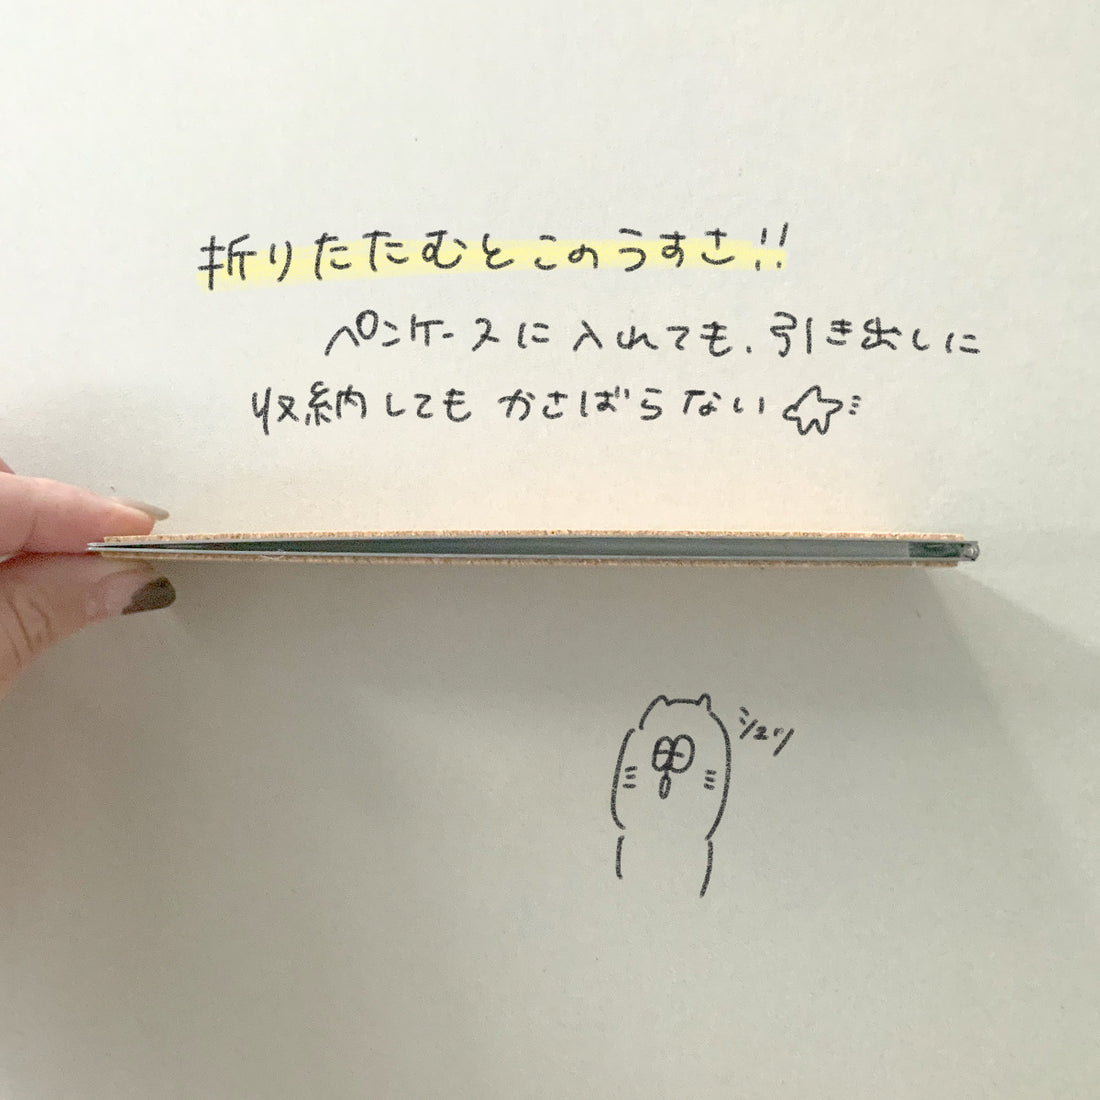 折りたたむとこのうすさ!!
ペンケースに入れても、引き出しに
収納してもかさばらない
シュッ